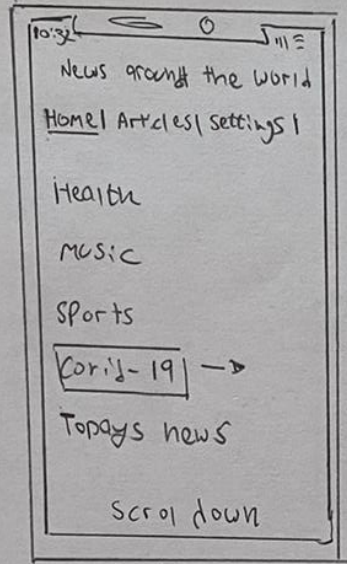 10:32
News around the world
Home| Articles| settings|
Health
music
Sports
Covid-19
Todays news
Scrol down